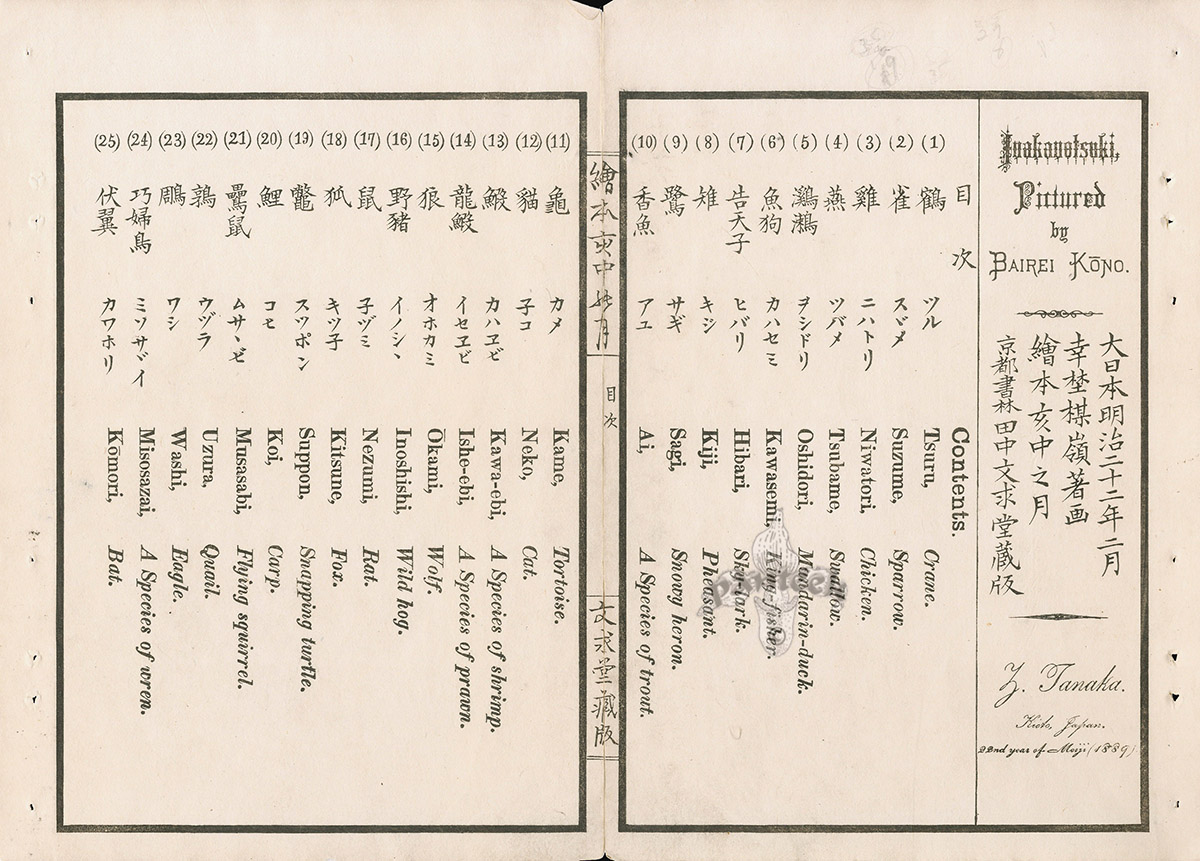 Inakanotsuki,
Pictured
by
BAIREI KŌNO.
大日本明治二十二年二月
幸埜楳嶺著画
繪本亥中之月
京都書林田中文求堂藏版
Z. Tanaka.
Kioto, Japan.
22nd year of Meiji (1889)
目次
Contents.
(1) 鶴 ツル Tsuru, Crane.
(2) 雀 スヾメ Suzume, Sparrow.
(3) 雞 ニハトリ Niwatori, Chicken.
(4) 燕 ツバメ Tsubame, Swallow.
(5) 鸂鶒 ヲシドリ Oshidori, Mandarin-duck.
(6) 魚狗 カハセミ Kawasemi, King-fisher.
(7) 告天子 ヒバリ Hibari, Sky-lark.
(8) 雉 キジ Kiji, Pheasant.
(9) 鷺 サギ Sagi, Snowy heron.
(10) 香魚 アユ Ai, A Species of trout.
繪本亥中之月
目次
文求堂藏版
(11) 龜 カメ Kame, Tortoise.
(12) 貓 子コ Neko, Cat.
(13) 鰕 カハヱビ Kawa-ebi, A Species of shrimp.
(14) 龍鰕 イセヱビ Ishe-ebi, A Species of prawn.
(15) 狼 オホカミ Okami, Wolf.
(16) 野豬 イノシヽ Inoshishi, Wild hog.
(17) 鼠 子ヅミ Nezumi, Rat.
(18) 狐 キツ子 Kitsune, Fox.
(19) 鼈 スツポン Suppon, Snapping turtle.
(20) 鯉 コヒ Koi, Carp.
(21) 鼺鼠 ムサヽビ Musasabi, Flying squirrel.
(22) 鶉 ウヅラ Uzura, Quail.
(23) 鵰 ワシ Washi, Eagle.
(24) 巧婦鳥 ミソサヾイ Misosazai, A Species of wren.
(25) 伏翼 カワホリ Kōmori, Bat.
panteek